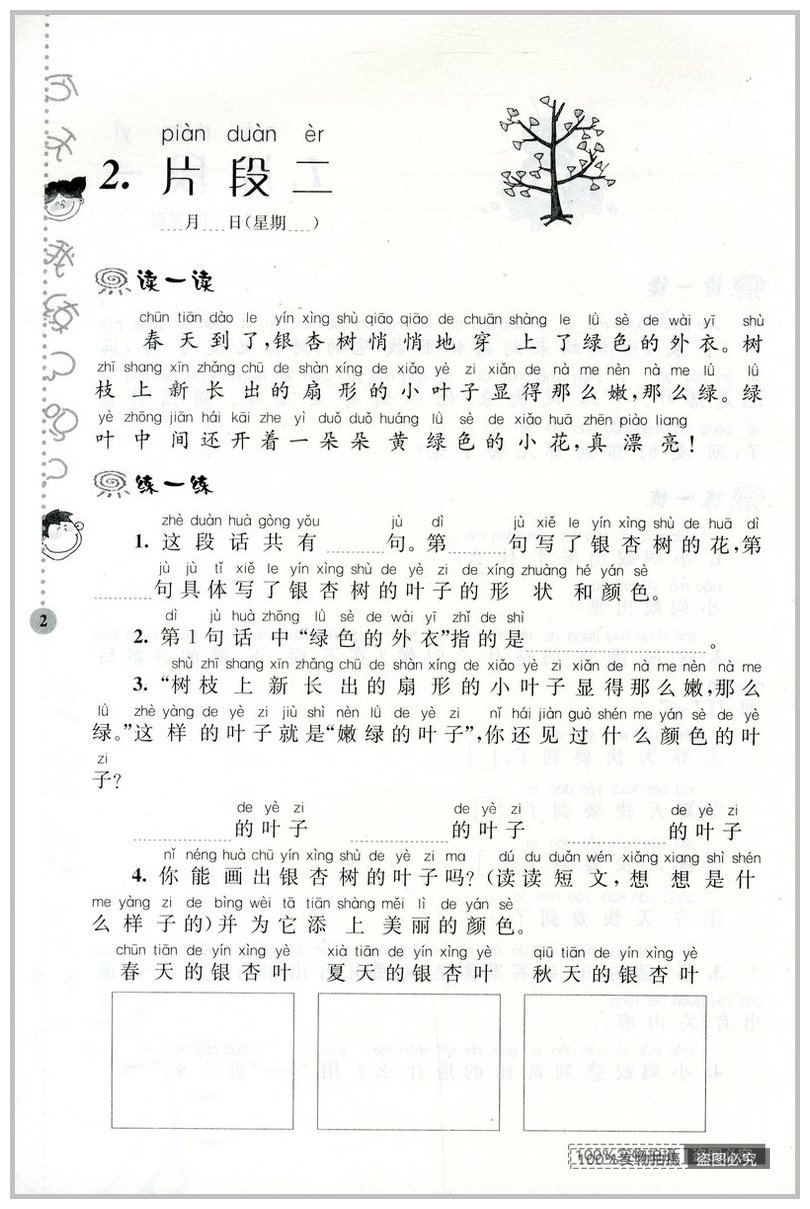 piàn duàn èr
2. 片段二
月 日(星期 )
读一读
chūn tiān dào le yín xìng shù qiāo qiāo de chuān shàng le lǜ sè de wài yī shù
春天到了,银杏树悄悄地穿上了绿色的外衣。树
zhī shang xīn zhǎng chū de shàn xíng de xiǎo yè zi xiǎn de nà me nèn nà me lǜ lǜ
枝上新长出的扇形的小叶子显得那么嫩,那么绿。绿
yè zhōng jiān hái kāi zhe yì duǒ duǒ huáng lǜ sè de xiǎo huā zhēn piào liang
叶中间还开着一朵朵黄绿色的小花,真漂亮!
练一练
zhè duàn huà gòng yǒu jù dì jù xiě le yín xìng shù de huā dì
1. 这段话共有 句。第 句写了银杏树的花,第
jù jù tǐ xiě le yín xìng shù de yè zi de xíng zhuàng hé yán sè
句具体写了银杏树的叶子的形状和颜色。
dì jù huà zhōng lǜ sè de wài yī zhǐ de shì
2. 第1句话中“绿色的外衣”指的是 。
shù zhī shang xīn zhǎng chū de shàn xíng de xiǎo yè zi xiǎn de nà me nèn nà me
3. “树枝上新长出的扇形的小叶子显得那么嫩,那么
lǜ zhè yàng de yè zi jiù shì nèn lǜ de yè zi nǐ hái jiàn guò shén me yán sè de yè
绿。”这样的叶子就是“嫩绿的叶子”,你还见过什么颜色的叶
zi
子?
de yè zi de yè zi de yè zi
的叶子 的叶子 的叶子
nǐ néng huà chū yín xìng shù de yè zi ma dú du duǎn wén xiǎng xiang shì shén
4. 你能画出银杏树的叶子吗?(读读短文,想想是什
me yàng zi de bìng wèi tā tiān shàng měi lì de yán sè
么样子的)并为它添上美丽的颜色。
chūn tiān de yín xìng yè xià tiān de yín xìng yè qiū tiān de yín xìng yè
春天的银杏叶 夏天的银杏叶 秋天的银杏叶
2
100%实物拍摄 盗图必究